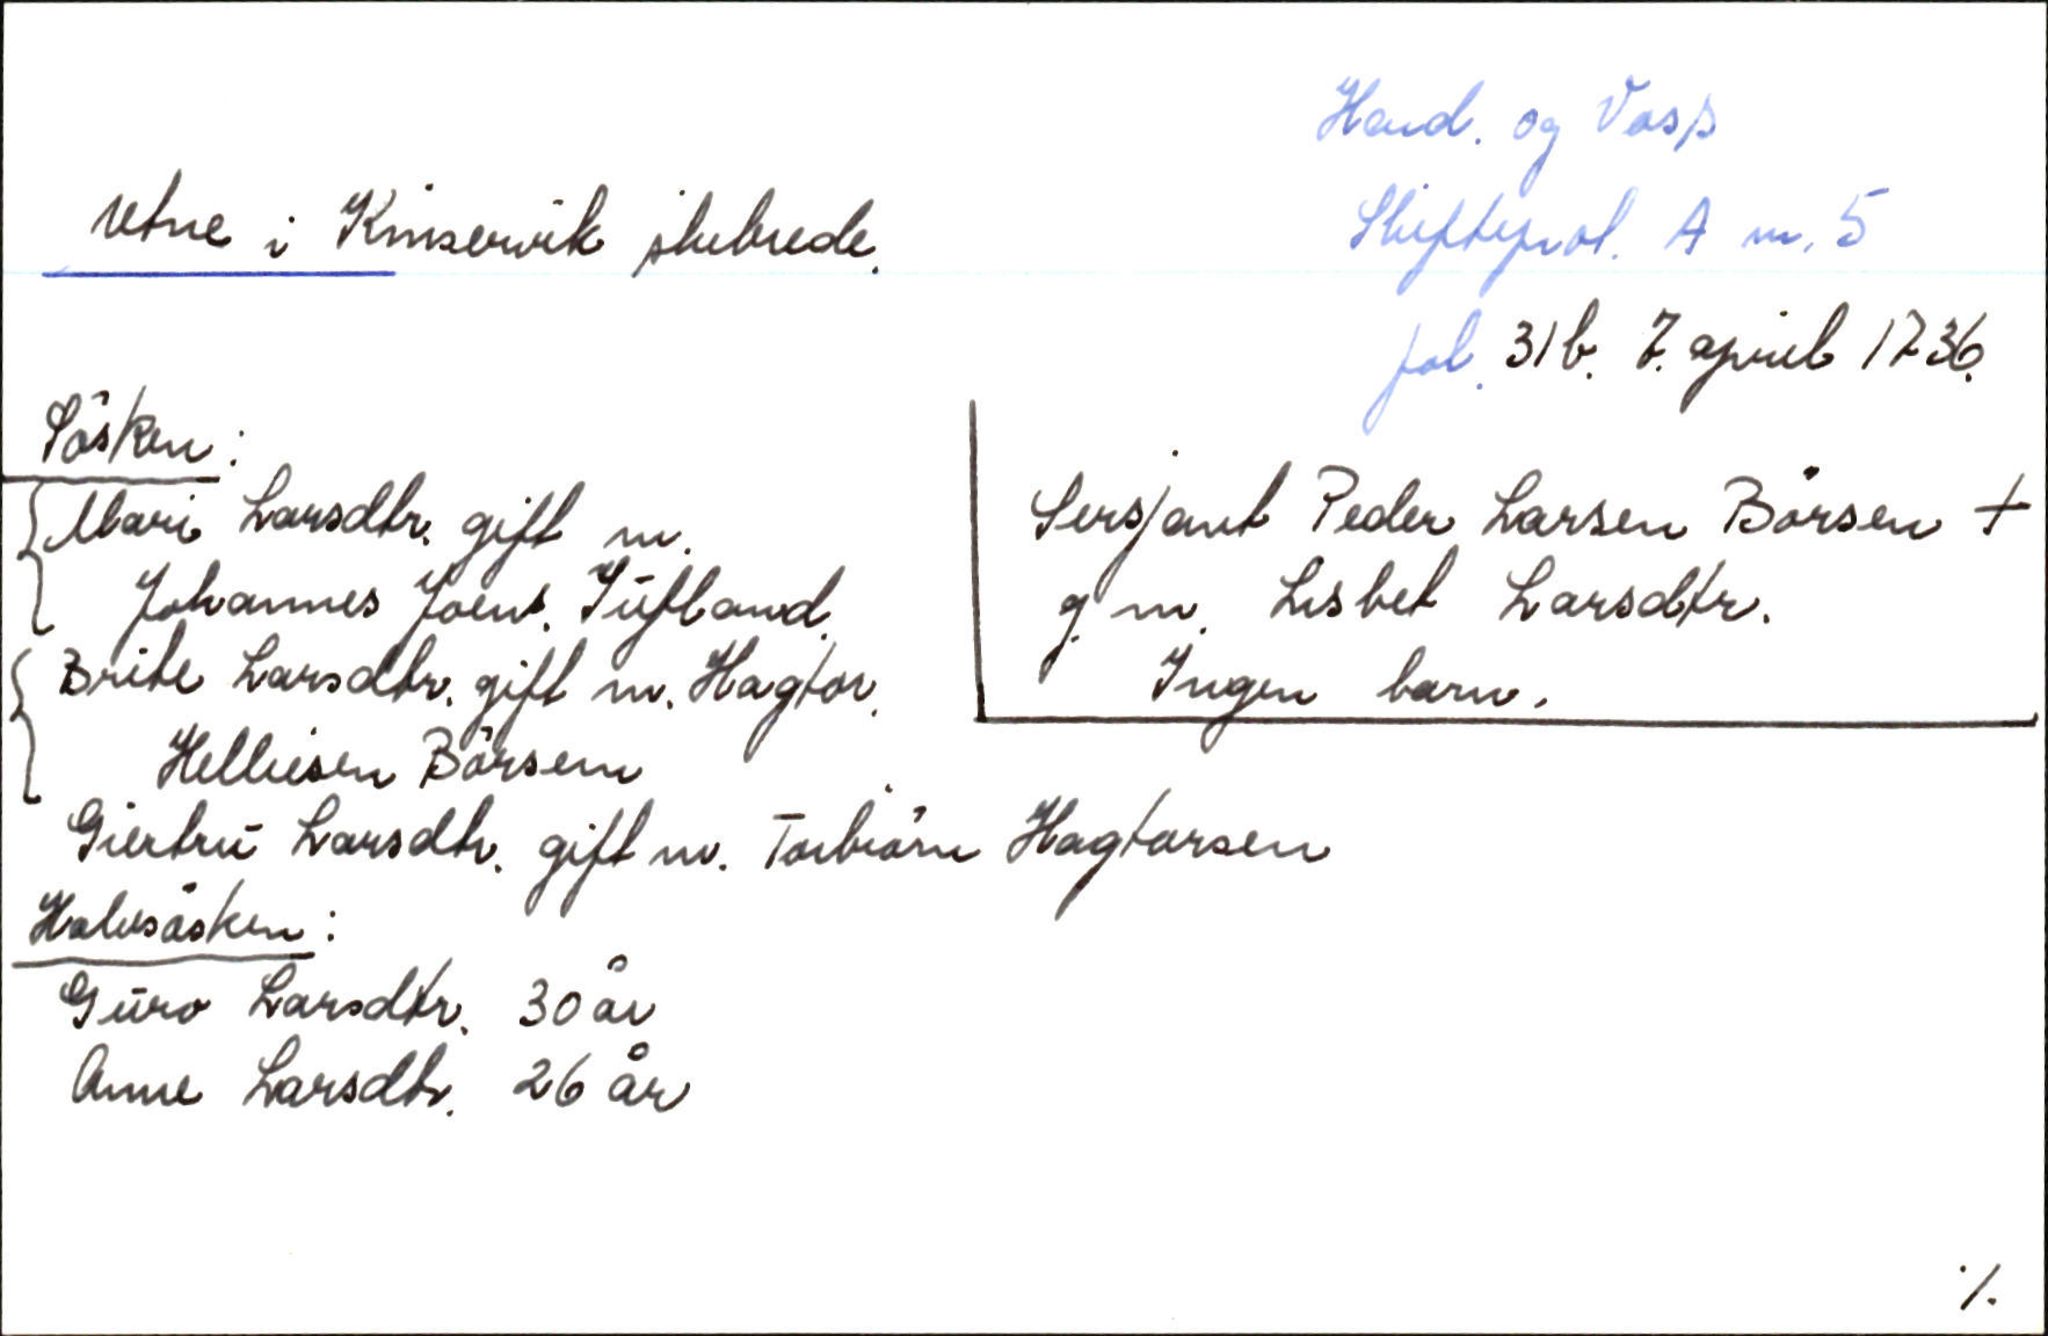 Hard. og Voss
Utne i Kinservik skibrede.
Skifteprot. A nr. 5
fol. 31b. 7. april 1736.
Søsken:
Mari Larsdtr. gift m.
Johannes Joens.
Brite Larsdtr. gift m. Hagtor.
Helliesen Börsem
Giertrü Larsdtr. gift m. Torbiörn Hagtorsen
Halvsösken:
Güro Larsdtr. 30 år
Anne Larsdtr. 26 år
Sersjant Peder Larsen Börsen +
g. m. Lisbet Larsdtr.
Ingen barn.
./.